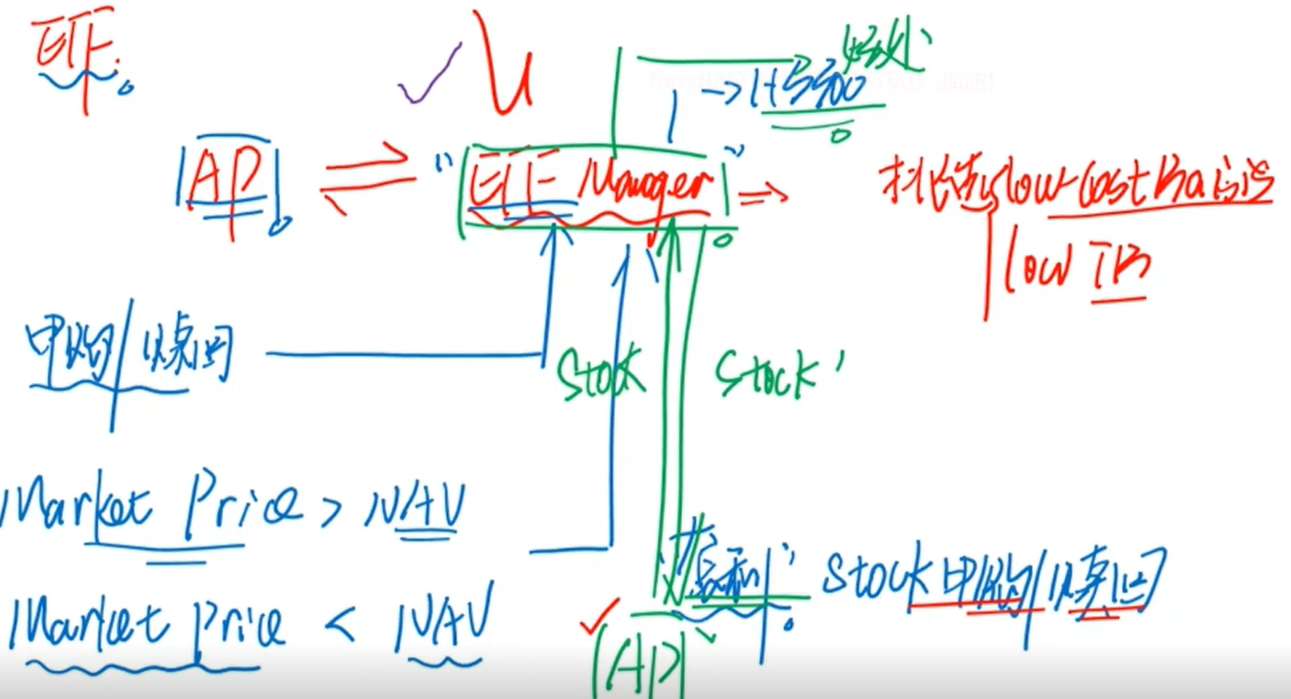 ETF
好处
→ HS300
AP ⇌ "ETF Manager" ⇒ 挑选 low Cost Basis
low TB
申购/赎回
Stock Stock
Market Price > NAV
套利 Stock 申购/赎回
Market Price < NAV
AP